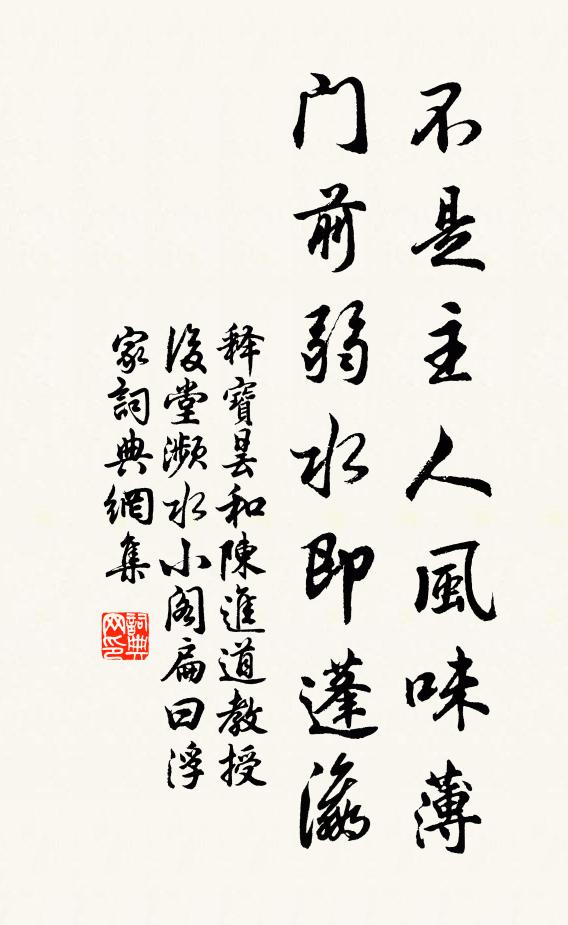 不是主人風味薄
门前弱水即蓬瀛
释寶昙和陳進道教授
後堂濒水小阁扁曰浮
家詞典網集
詞典网印